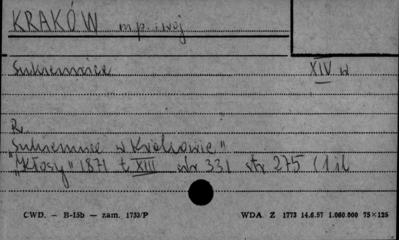 KRAKÓW m p. i woj
Sukiennice XIV w
R.
"Sukiennice w Krakowie"
"Kłosy" 1871 t. XIII nr 331 str 275 (1 il
CWD. — B-15b — zam. 1753/P WDA. Z 1773 14.6.57 1.000.000 75×125